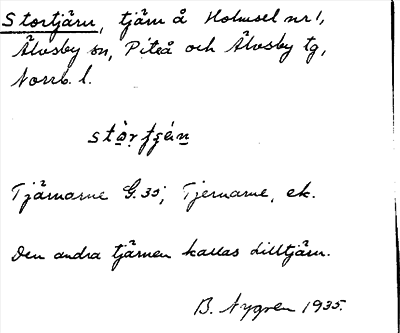 Stortjärn, tjärn å Holmsel nr 1,
Älvsby sn, Piteå och Älvsby tg,
Norrb. l.
Tjärnarne G.35; Tjernarne, ek.
Den andra tjärnen kallas Lilltjärn.
B. Nygren 1935.